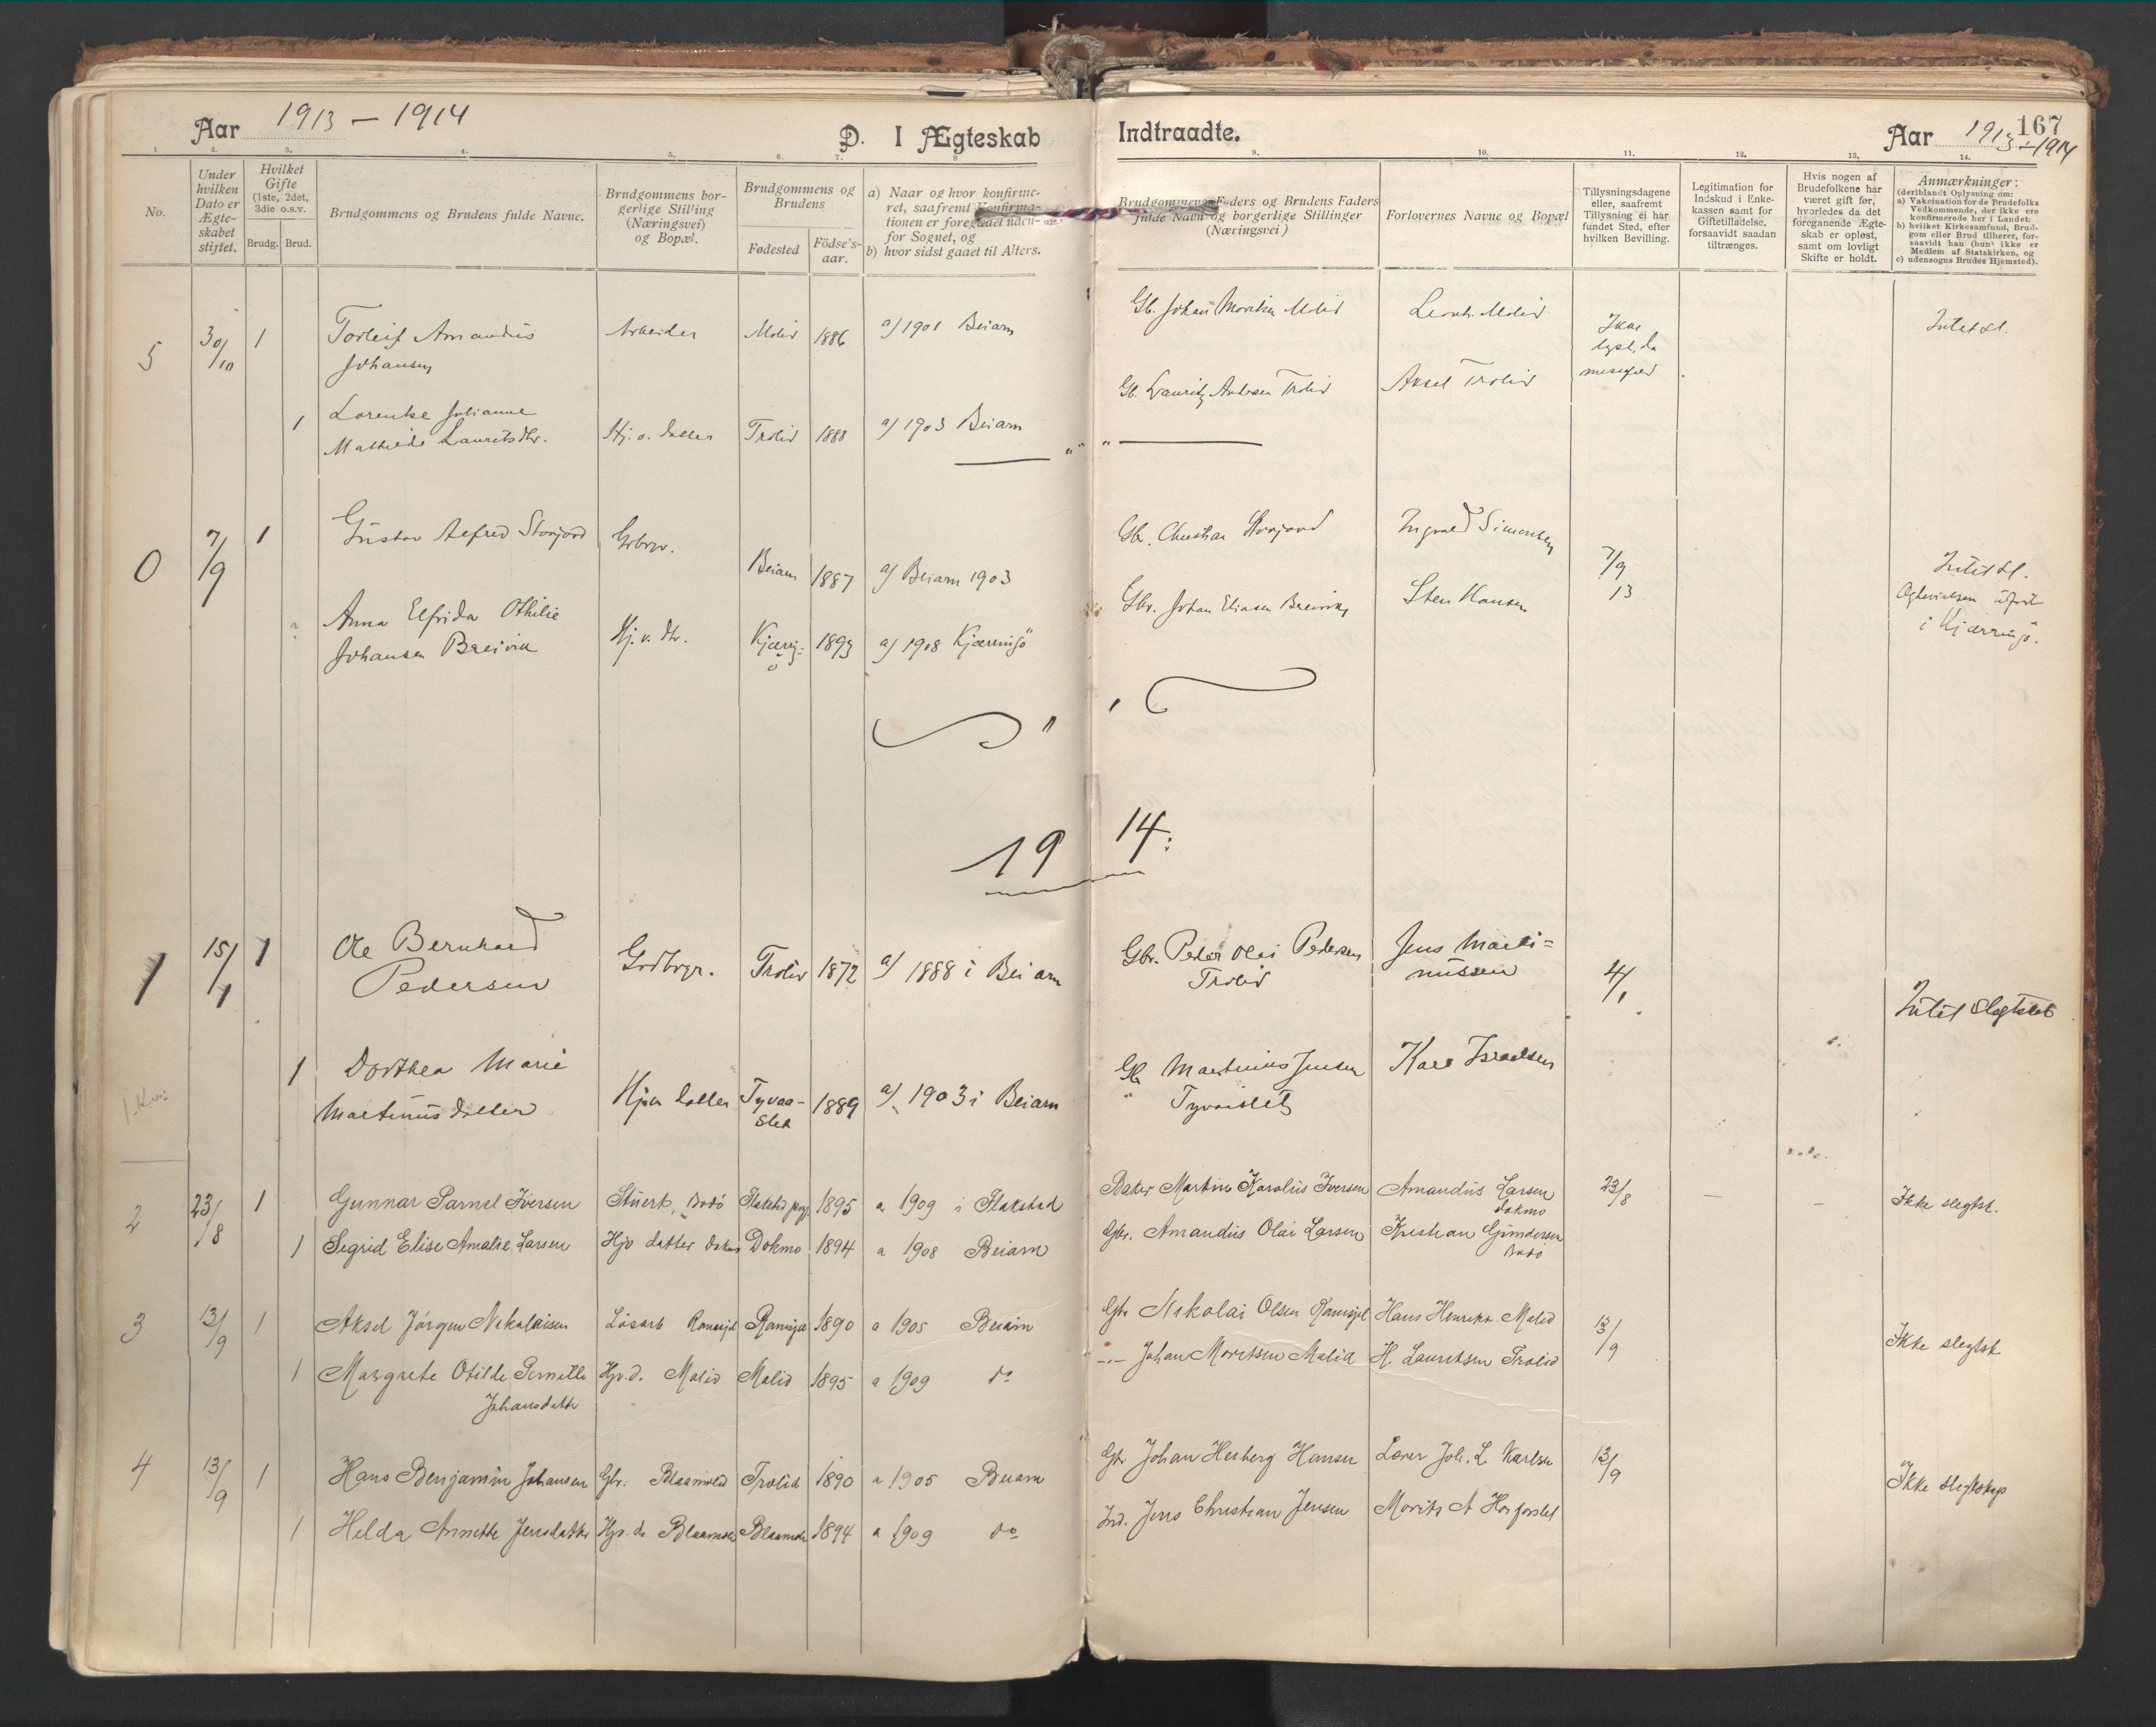 Aar 1913 – 1914
D. I Ægteskab
Indtraadte.
Aar 1913–1914
167
1. 2. 3. 4. 5. 6. 7. 8 9. 10. 11. 12. 13. 14.
No.
Under hvilken Dato er Ægte-skabet stiftet.
Hvilket Gifte (1ste, 2det, 3die o.s.v.
Brudg. Brud.
Brudgommens og Brudens fulde Navne.
Brudgommens bor-gerlige Stilling (Næringsvei) og Bopæl.
Brudgommens og Brudens
Fødested
Födse's-aar.
a) Naar og hvor konfirme-ret, saafremt Konfirma-tionen er foregaaet uden-for Sognet, og
b) hvor sidst gaaet til Alters.
Brudgommens Faders og Brudens Faders fulde Navn og borgerlige Stillinger (Næringsvei)
Forlovernes Navne og Bopæl
Tillysningsdagene eller, saafremt Tillysning ei har fundet Sted, efter hvilken Bevilling.
Legitimation for Indskud i Enke-kassen samt for Giftetilladelse, forsaavidt saadan tiltrænges.
Hvis nogen af Brudefolkene har været gift før, hvorledes da det foregaaende Ægte-skab er opløst, samt om lovligt Skifte er holdt.
Anmærkninger:
(deriblandt Oplysning om:
a) Vakcination for de Brudefolks Vedkommende, der ikke ere konfirmerede her i Landet:
b) hvilket Kirkesamfund, Brud-gom eller Brud tilhører, for-saavidt han (hun) ikke er Medlem af Statskirken, og
c) udensogns Brudes Hjemsted).
5 30/10 1 Torleif Amandus Johansen Arbeider Molid 1886 a/ 1901 Beiarn Gb. Johan Moritsen Molid Leonh. Molid Ikke lyst, da Intet sl.
1 Lorentse Julianne Mathilde Lauritsdtr. Hj. v. datter Trolid 1888 a/ 1903 Beiarn Gb. Lauritz Andersen Trolid Aksel Trolid
0 7/9 1 Gustav Alfred Storjord Grbrgr. Beiarn 1887 a/ Beiarn 1903 Gbr. Christian Storjord Ingvald Simonsen 7/9 13 Intet sl.
Anna Elfrida Othilie Johansen Breivik Hj. v. dtr. Kjæring=ö 1893 a/ 1908 Kjæringö Gbr. Johan Eliasen Breivik Sten Hansen i Kjæringö.
19 14:
1 15/1 1 Ole Bernhard Pedersen Grdbrgr. Trolid 1872 a/ 1888 i Beiarn Gbr. Peder Olai Pedersen Trolid Jens Marti=nussen 4/1 Intet Slegtskab
1 Dorthea Marie Martinusdatter Hjv. datter Tvvaa-slet 1889 a/ 1903 i Beiarn Gb. Martinus Jensen Karl Israelsen
2 23/8 1 Gunnar Parnel Iversen Stuert, Bodö Flakstad 1895 a 1909 i Flakstad Baker Martin Karolius Iversen Amandus Larsen Dokmo 23/8 – – Ikke slegtsk.
1 Sigrid Elise Amalie Larsen Hjv datter Dokmo Dokmo 1894 a 1908 Beiarn Gbr. Amandus Olai Larsen Kristian Gundersen Bodö
3 13/9 1 Aksel Jörgen Nikolaisen Lösarb Ramsjel Ramsjel 1890 a 1905 Beiarn Gbr Nikolai Olsen Ramsjel Hans Henriks. Molid 13/9 Ikke slegtsk
1 Margrete Otilde Pernille Johansdatter Hjv. d. Molid Molid 1895 a 1909 do –"– Johan Moritsen Molid H. Lauritsen Trolid
4 13/9 1 Hans Benjamin Johansen Gbr. Blaamoli Trolid 1890 a 1905 Beiarn Gbr Johan Hesberg Hansen Lærer Joh. L. Karlsen 13/9 Ikke slegtskap
1 Hilda Annette Jensdatter Hjv. da Blaamoli Blaamoli 1894 a 1909 do Ind. Jens Christian Jensen Morits A